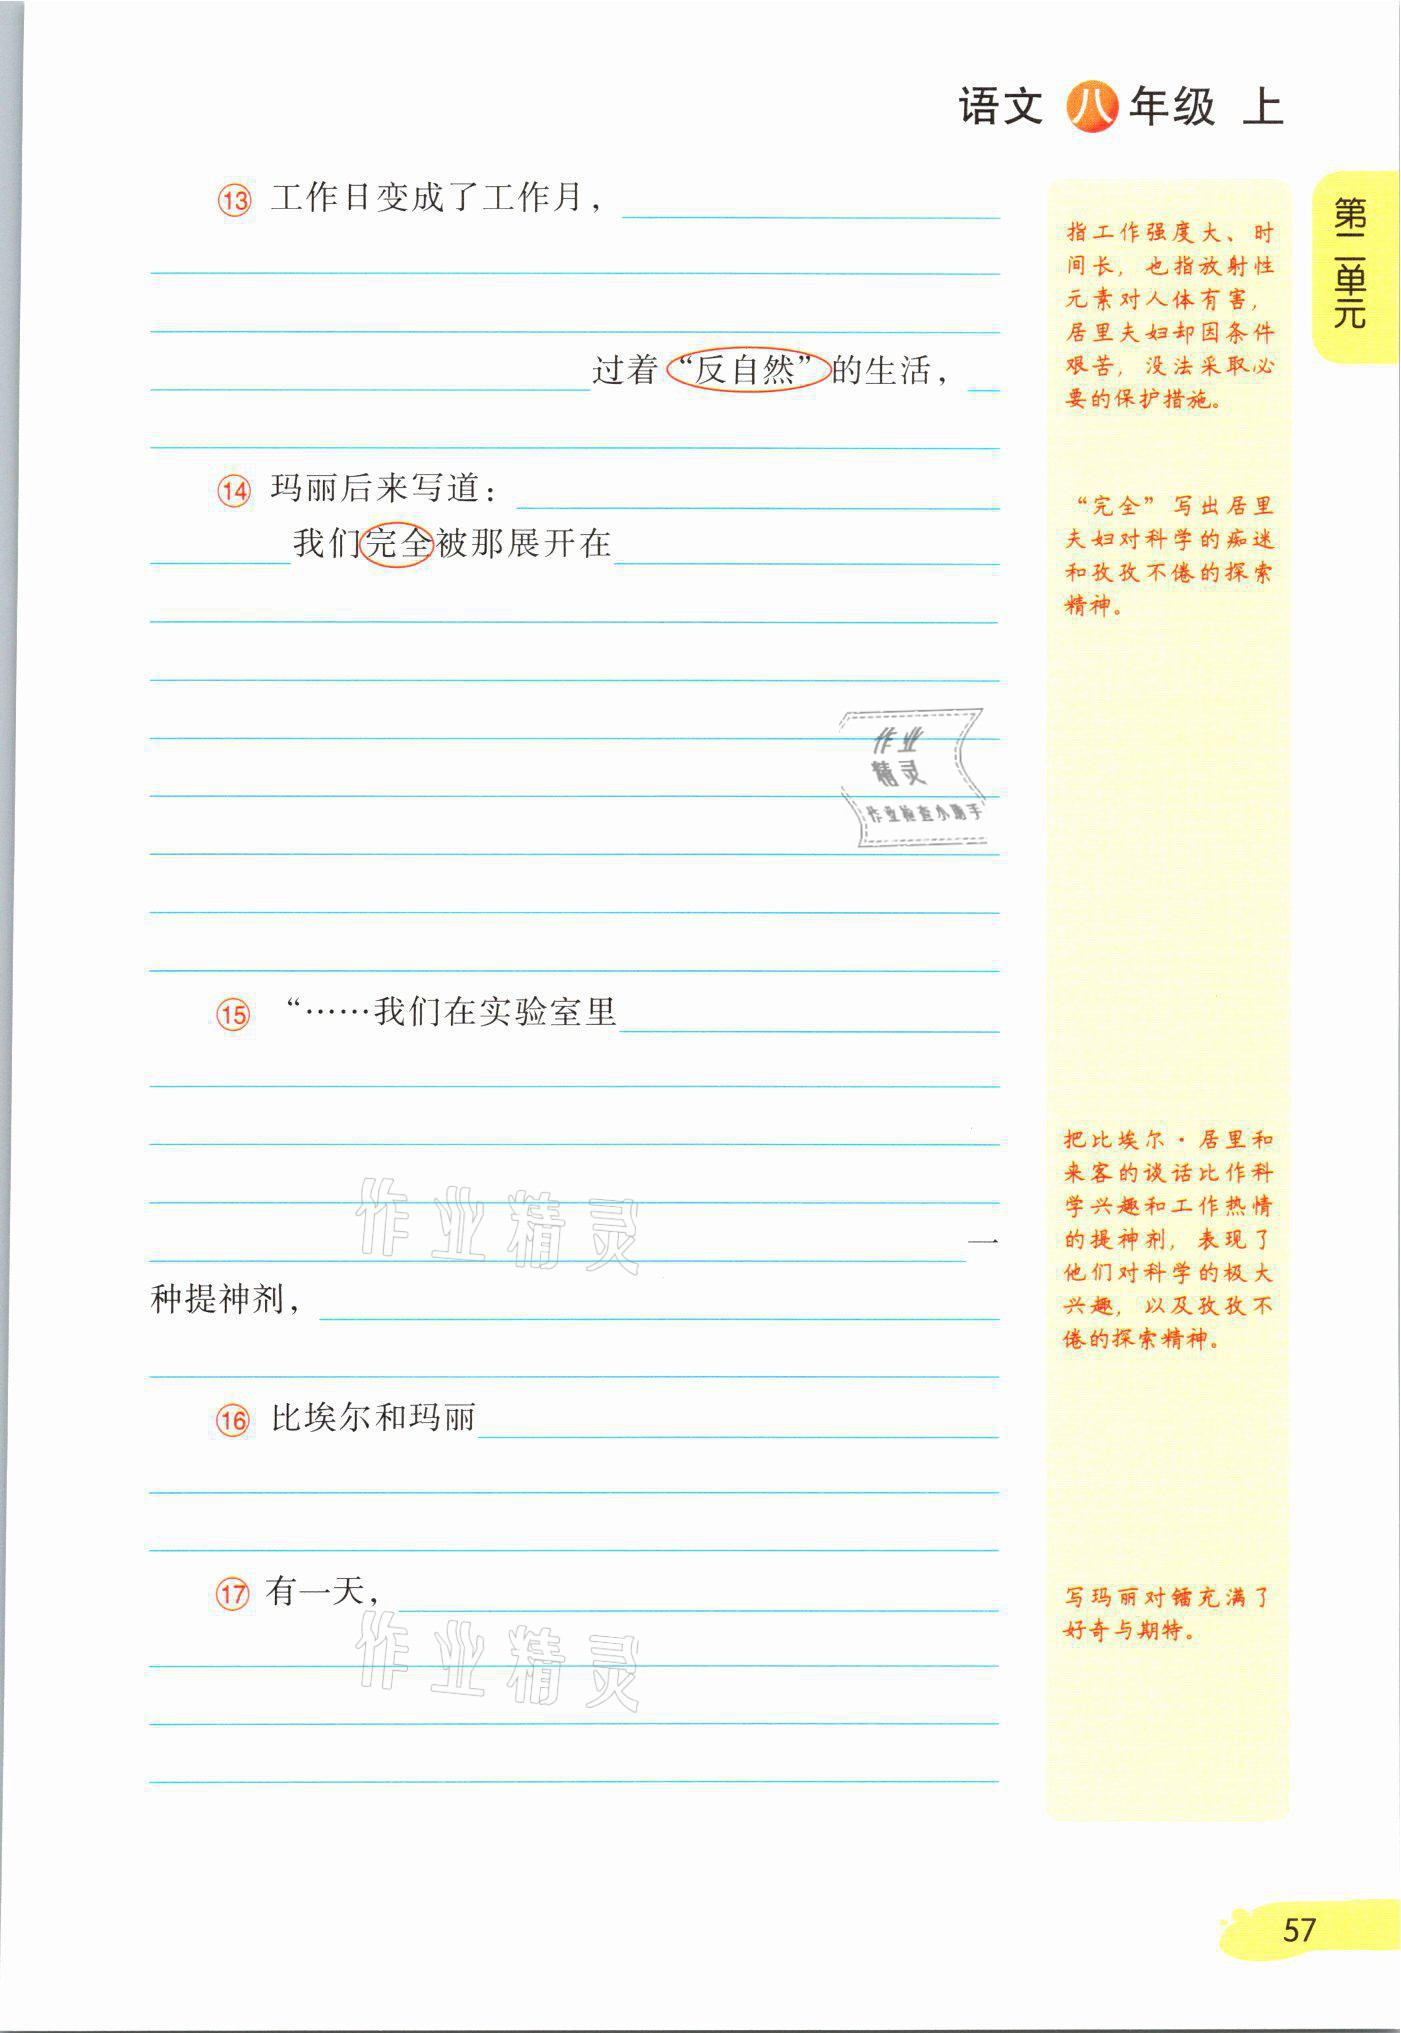 语文 八 年级 上
第二单元
⑬ 工作日变成了工作月，
过着“反自然”的生活，
⑭ 玛丽后来写道：
我们完全被那展开在
⑮ “……我们在实验室里
一
种提神剂，
⑯ 比埃尔和玛丽
⑰ 有一天，
指工作强度大、时
间长，也指放射性
元素对人体有害，
居里夫妇却因条件
艰苦，没法采取必
要的保护措施。
“完全”写出居里
夫妇对科学的痴迷
和孜孜不倦的探索
精神。
把比埃尔·居里和
来客的谈话比作科
学兴趣和工作热情
的提神剂，表现了
他们对科学的极大
兴趣，以及孜孜不
倦的探索精神。
写玛丽对镭充满了
好奇与期待。
作业
精灵
作业检查小助手
作业精灵
作业精灵
57